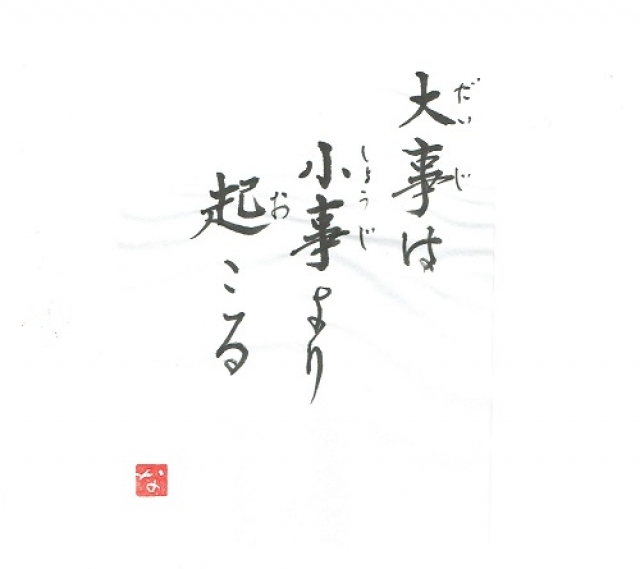 大事は
だいじ
小事より
しょうじ
起こる
お
な